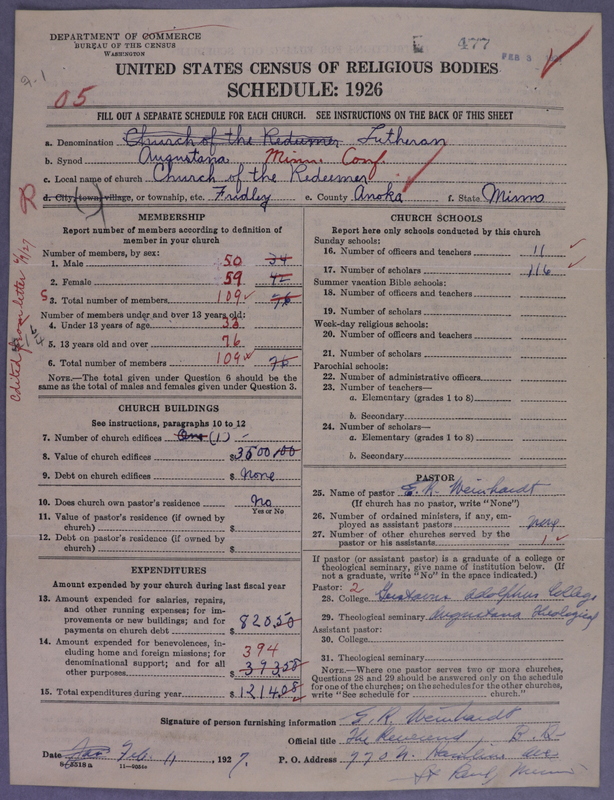 DEPARTMENT OF COMMERCE
BUREAU OF THE CENSUS
WASHINGTON
477
FEB 3
9-1
UNITED STATES CENSUS OF RELIGIOUS BODIES
SCHEDULE: 1926
05
FILL OUT A SEPARATE SCHEDULE FOR EACH CHURCH. SEE INSTRUCTIONS ON THE BACK OF THIS SHEET
a. Denomination Church of the Redeemer Lutheran
b. Synod Augustana Minn. Conf.
c. Local name of church Church of the Redeemer
d. City, town, village, or township, etc. Fridley e. County Anoka f. State Minn
MEMBERSHIP
Report number of members according to definition of
member in your church
Number of members, by sex:
1. Male 50 34
2. Female 59 42
3. Total number of members 109 76
Number of members under and over 13 years old:
4. Under 13 years of age 33
5. 13 years old and over 76
6. Total number of members 109 76
NOTE.—The total given under Question 6 should be
same as the total of males and females given under Question 3.
Edited from letter
CHURCH BUILDINGS
See instructions, paragraphs 10 to 12
7. Number of church edifices One (1)
8. Value of church edifices $3500.00
9. Debt on church edifices $ None
10. Does church own pastor's residence No
Yes or No
11. Value of pastor's residence (if owned by
church) $
12. Debt on pastor's residence (if owned by
church) $
EXPENDITURES
Amount expended by your church during last fiscal year
13. Amount expended for salaries, repairs,
and other running expenses; for im-
provements or new buildings; and for
payments on church debt $ 820.50
14. Amount expended for benevolences, in-
cluding home and foreign missions; for
denominational support; and for all
other purposes 394 $ 393.58
15. Total expenditures during year $ 1214.08
CHURCH SCHOOLS
Report here only schools conducted by this church
Sunday schools:
16. Number of officers and teachers 11
17. Number of scholars 116
Summer vacation Bible schools:
18. Number of officers and teachers
19. Number of scholars
Week-day religious schools:
20. Number of officers and teachers
21. Number of scholars
Parochial schools:
22. Number of administrative officers
23. Number of teachers—
a. Elementary (grades 1 to 8)
b. Secondary
24. Number of scholars—
a. Elementary (grades 1 to 8)
b. Secondary
PASTOR
25. Name of pastor E. R. Weinhardt
(If church has no pastor, write "None")
26. Number of ordained ministers, if any, em-
ployed as assistant pastors none
27. Number of other churches served by the
pastor or his assistants 1
If pastor (or assistant pastor) is a graduate of a college or
theological seminary, give name of institution below. (If
not a graduate, write "No" in the space indicated.)
Pastor: 2
28. College Gustavus Adolphus College
29. Theological seminary Augustana Theological
Assistant pastor:
30. College
31. Theological seminary
NOTE.—Where one pastor serves two or more churches,
Questions 28 and 29 should be answered only on the schedule
for one of the churches; on the schedules for the other churches,
write "See schedule for church."
Signature of person furnishing information E. R. Weinhardt
Official title The Reverend, B. D.
Date Feb. 11, 1927. P. O. Address 770 N. Hamline Ave
8-5518a
St Paul, Minn